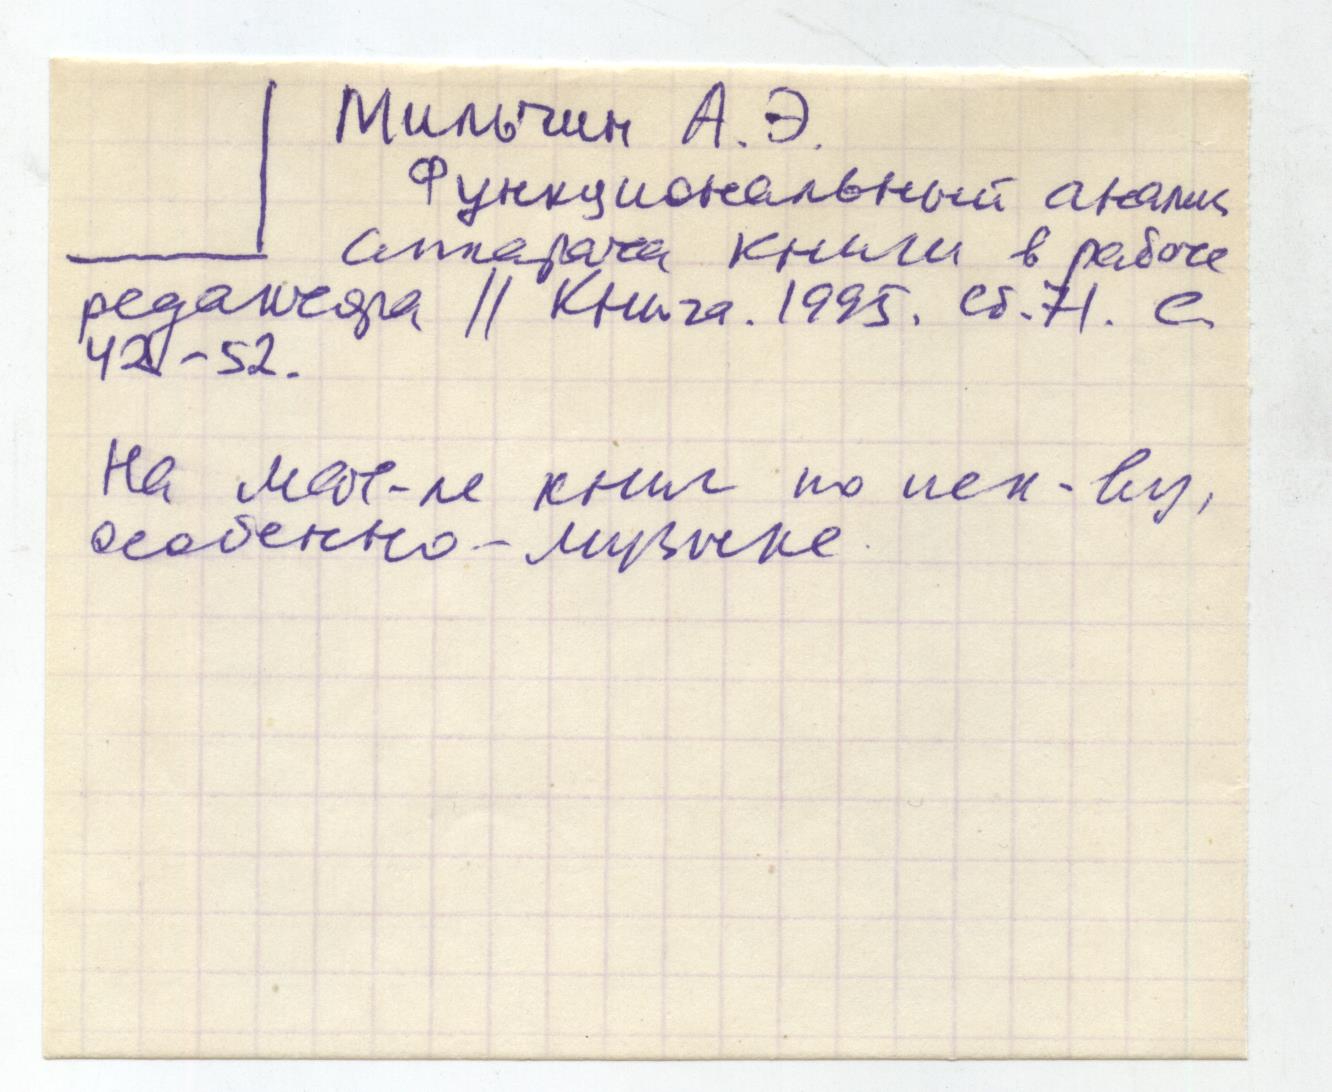 Мильчин А.Э.
Функциональный анализ
аппарата книги в работе
редактора // Книга. 1995. Сб. 71. С.
42-52.
На мат-ле книг по иск-ву,
особенно - музыке.